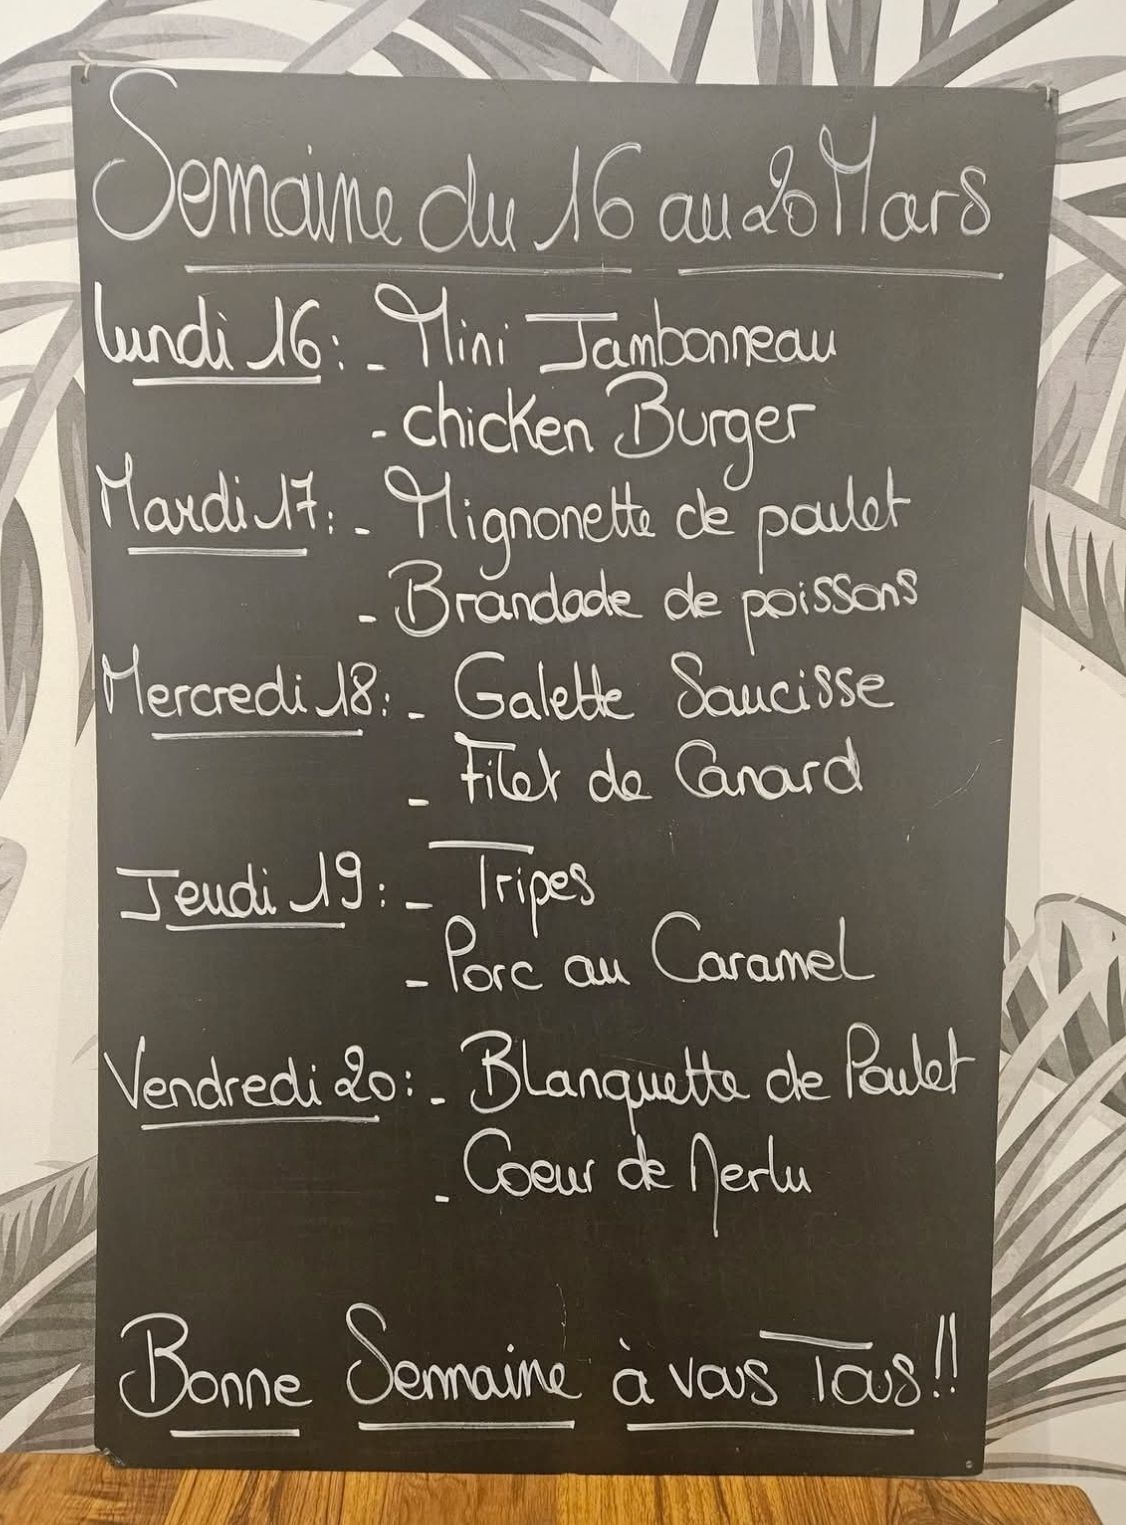 Semaine du 16 au 20 Mars
Lundi 16 : - Mini Jambonneau
- chicken Burger
Mardi 17 : - Mignonette de poulet
- Brandade de poissons
Mercredi 18 : - Galette Saucisse
- Filet de Canard
Jeudi 19 : - Tripes
- Porc au Caramel
Vendredi 20 : - Blanquette de Poulet
- Coeur de Merlu
Bonne Semaine à vous Tous !!